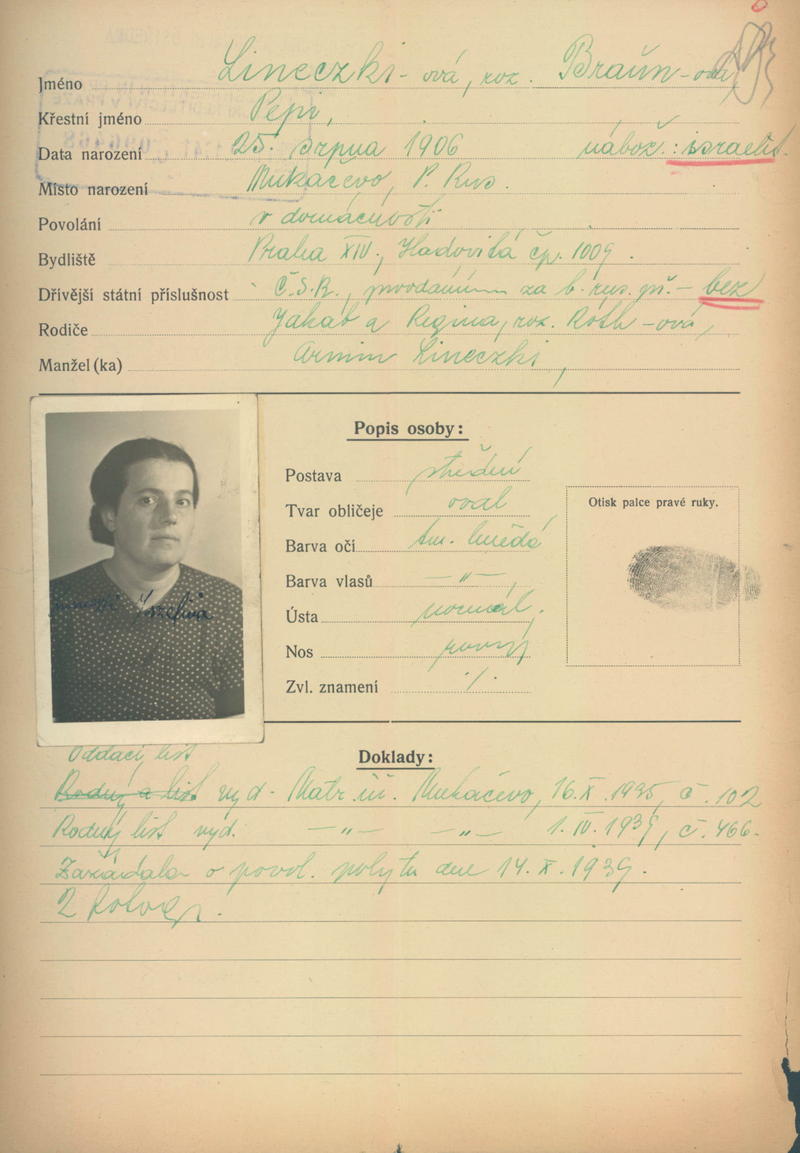 Jméno Lineczki-ová, roz. Braun-ová
Křestní jméno Pepi,
Data narození 25. srpna 1906 nábož.: israelit.
Místo narození Mukačevo, P. Rus.
Povolání v domácnosti
Bydliště Praha XIV., čp. 1009.
Dřívější státní příslušnost Č.S.R., za b. rus. př. - bez
Rodiče Jakab a Regina, roz. Roth-ová,
Manžel(ka) Armin Lineczki,
Popis osoby:
Postava střední
Tvar obličeje oval
Barva očí tm. hnědé
Barva vlasů —"—,
Ústa normál,
Nos rovný
Zvl. znamení ·/·
Otisk palce pravé ruky.
Doklady:
Oddací list
Rodný a list vyd. Matr. úř. Mukačevo, 16.X.1935, č. 102
Rodný list vyd. —"— —"— 1.IV.1939, č. 466.
Zažádala o povol. pobytu dne 14.X.1939.
2 fotogr.